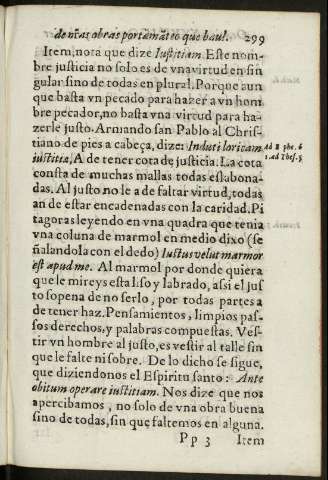 de nr̃as obras portamãteo que baul. 299
Item, nota que dize Iustitiam. Este nom-
bre justicia no solo es de vna virtud en sin
gular sino de todas en plural. Porque aun
que basta vn pecado para hazer a vn hom
bre pecador, no basta vna virtud para ha-
zerle justo. Armando san Pablo al Chris-
tiano de pies a cabeça, dize: Induti loricam
iustitiæ, A de tener cota de justicia. La cota
consta de muchas mallas todas eslabona-
das. Al justo no le a de faltar virtud, todas
an de estar encadenadas con la caridad. Pi
tagoras leyendo en vna quadra que tenia
vna coluna de marmol en medio dixo (se
ñalandola con el dedo) Iustus velut marmor
est apud me. Al marmol por donde quiera
que le mireys esta liso y labrado, assi el jus
to sopena de no serlo, por todas partes a
de tener haz. Pensamientos, limpios pas-
sos derechos, y palabras compuestas. Ves-
tir vn hombre al justo, es vestir al talle sin
que le falte ni sobre. De lo dicho se sigue,
que diziendonos el Espiritu santo: Ante
obitum operare iustitiam. Nos dize que nos
apercibamos, no solo de vna obra buena
sino de todas, sin que faltemos en alguna.
Pp 3 Item